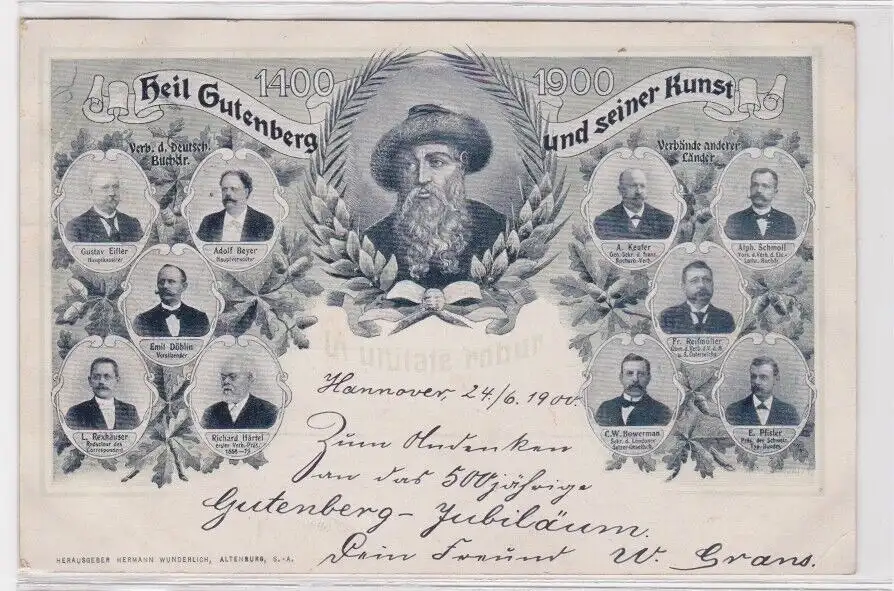 1400 1900
Heil Gutenberg und seiner Kunst
Verb. d. Deutsch.
Buchdr.
Gustav Eifler
Hauptkassirer
Adolf Beyer
Hauptverwalter
Emil Döblin
Vorsitzender
L. Rexhäuser
Redacteur des
Correspondent
Richard Härtel
erster Verb.-Präs.
Verbände anderer
Länder
A. Keufer
Gen. Sekr. d. franz.
Bucharb.-Verb.
Alph. Schmoll
Vors. d. Verb. d. Els.-
Lothr. Buchdr.
Fr. Reifmüller
C.W. Bowerman
Sekr. d. Londoner
Setzer-Gesellsch.
E. Pfister
Präs. der Schweiz.
Typ. Bundes
In unitate robur
Hannover, 24./6. 1900.
Zum Andenken
an das 500jährige
Gutenberg-Jubiläum.
Dein Freund W. Grans.
HERAUSGEBER HERMANN WUNDERLICH, ALTENBURG, S.-A.